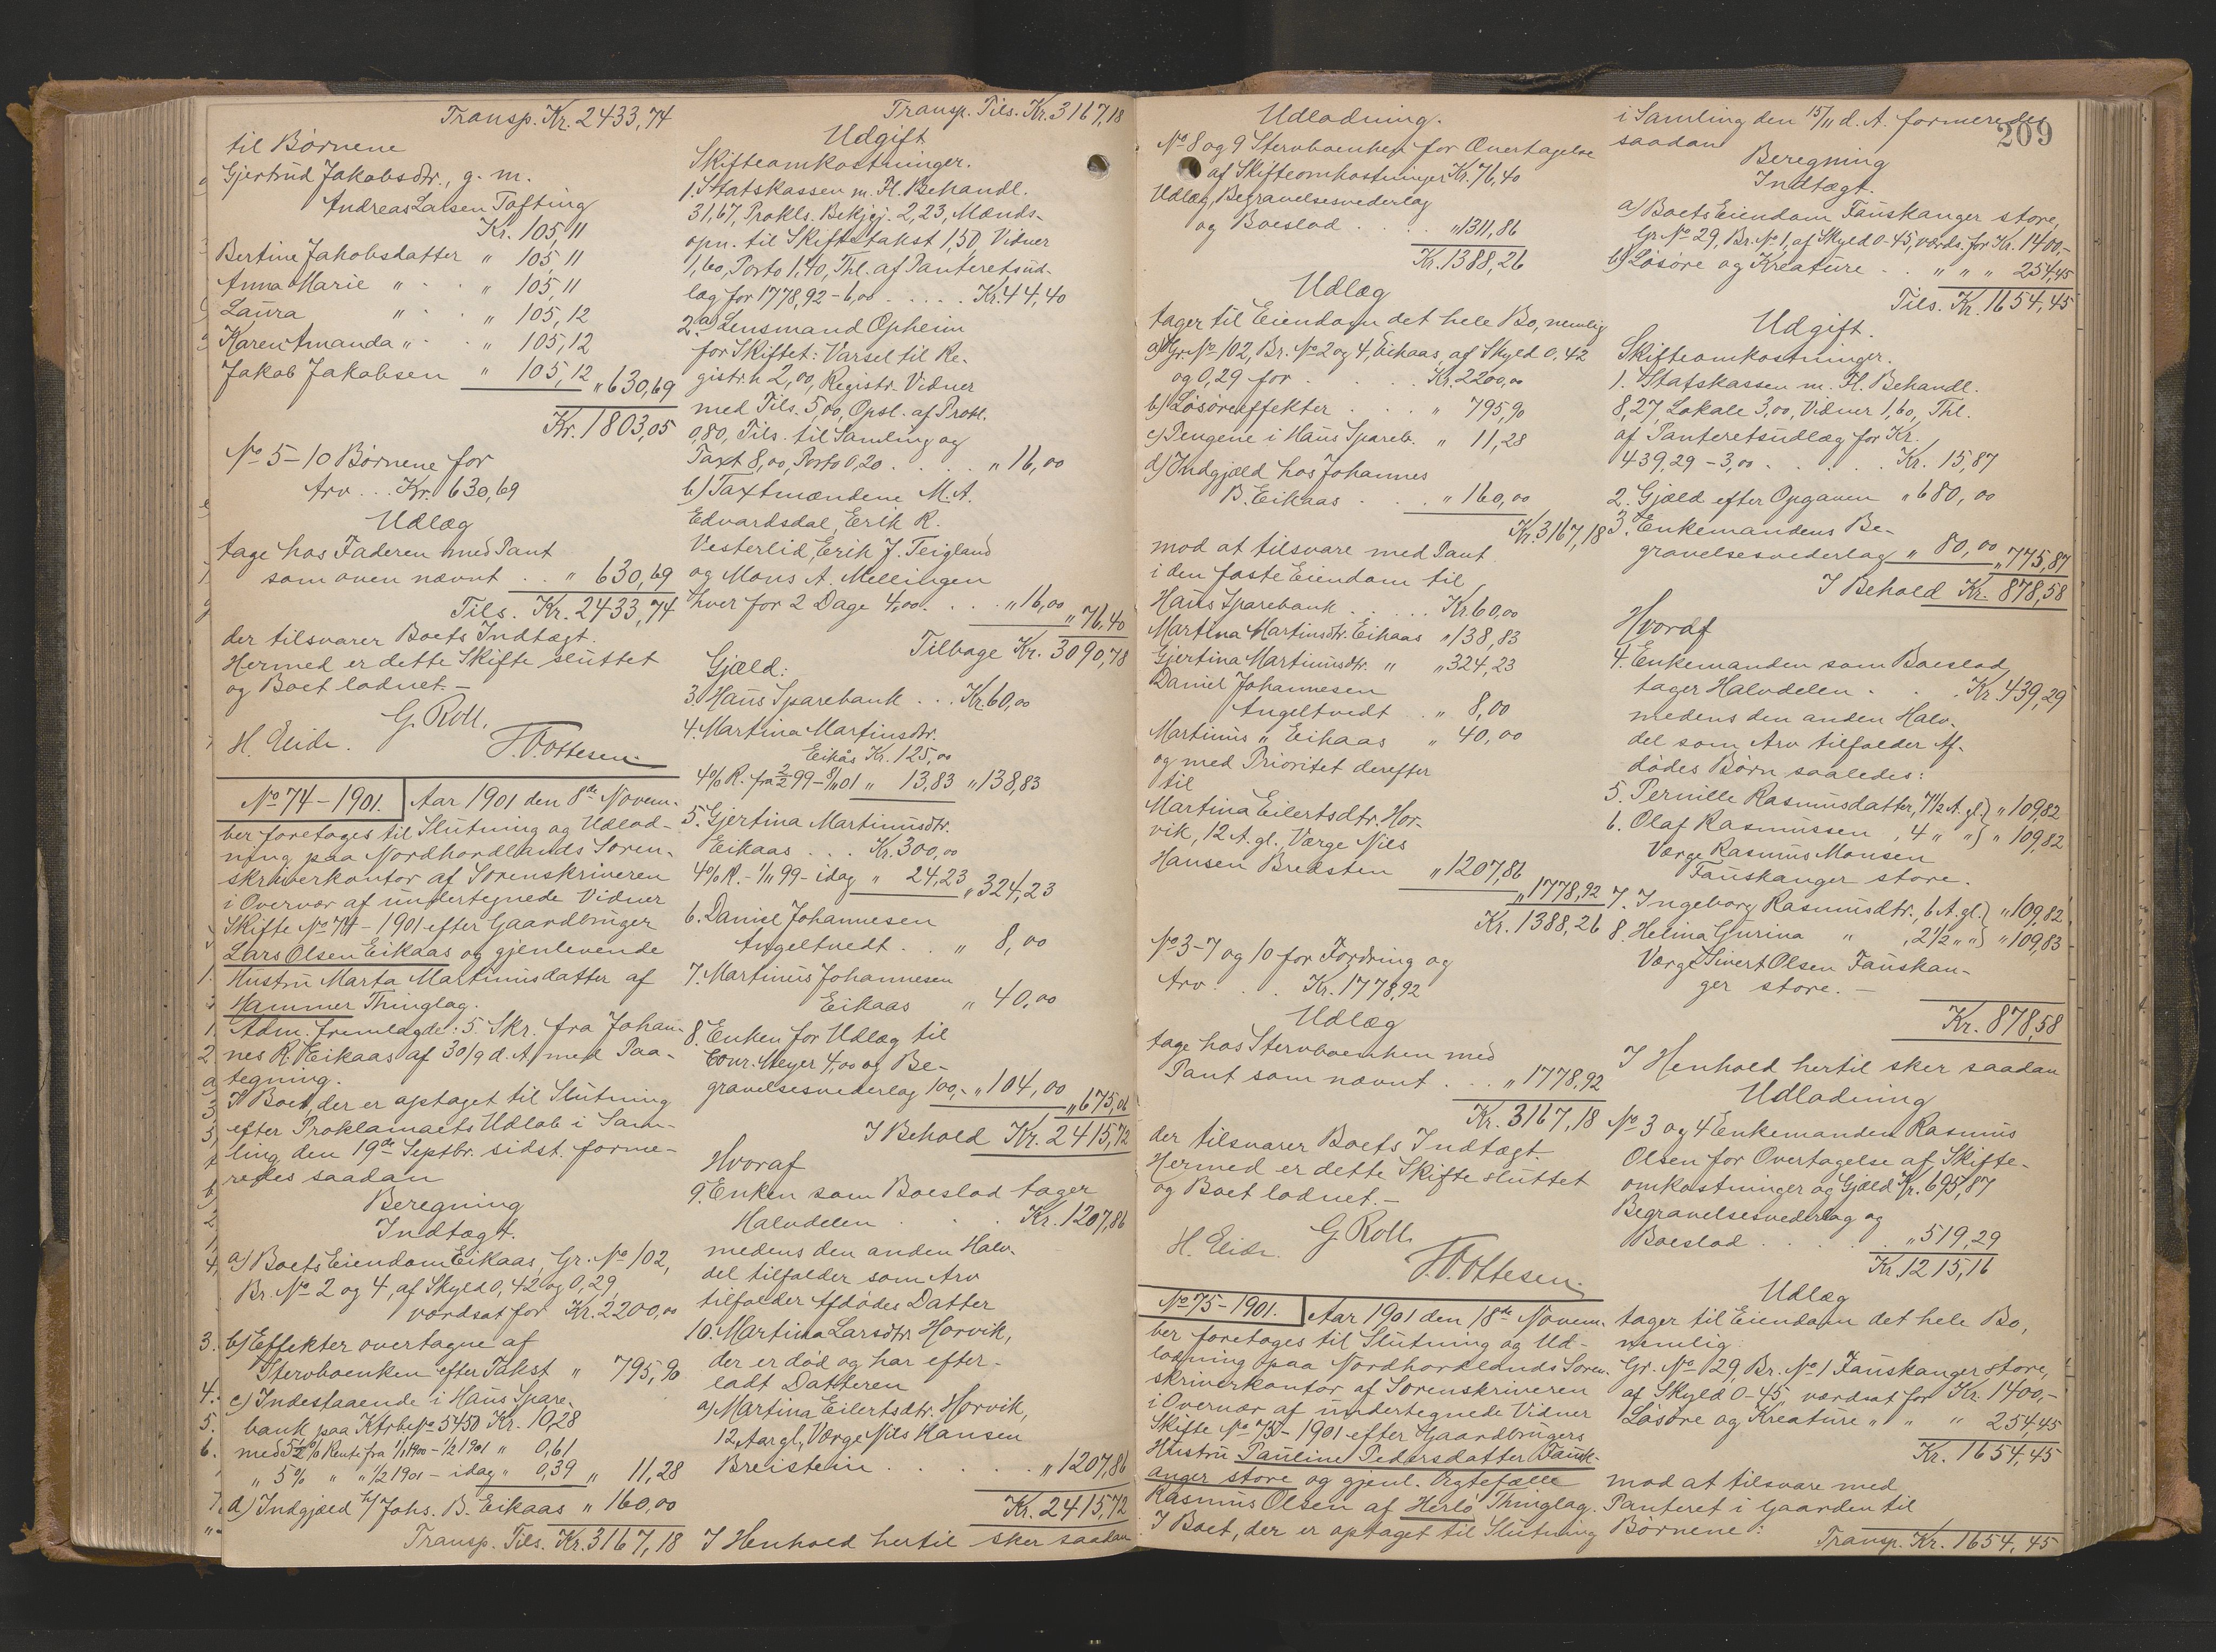 Transp. Kr. 2433,74
til Børnene
Gjertrud Jakobsdtr., g. m.
Andreas Larsen Tofting
Kr. 105,11
Bertine Jakobsdatter " 105,11
Anna Marie " . . " 105,11
Laura " . " 105,12
Karen Amanda " . " 105,12
Jakob Jakobsen " 105,12
" 630,69
Kr. 1803,05
No 5-10 Børnene for
Arv . . . Kr. 630,69
Udlæg
tage hos Faderen med Pant
som oven nævnt . . " 630,69
Tils. Kr. 2433,74
der tilsvarer Boets Indtægt.
Hermed er dette Skifte sluttet
og Boet lodnet. -
G. Roll.
H. Eide. T. Ottesen.
No 74 - 1901. Aar 1901 den 8de Novem-
ber foretoges til Slutning og Udlod-
ning paa Nordhordlands Soren-
skriverkontor af Sorenskriveren
i Overvær af undertegnede Vidner
Skifte No 74 - 1901 efter Gaardbruger
Lars Olsen Eikaas og gjenlevende
Hustru Marta Martinusdatter af
Hammer Thinglag.
Adm. fremlagde: 5. Skr. fra Johan-
nes R. Eikaas af 30/9 d. A. med Paa-
tegning.
I Boet, der er optaget til Slutning
efter Proklamaets Udløb i Sam-
ling den 19de Septbr. sidst. forme-
redes saadan
Beregning
Indtægt.
a) Boets Eiendom Eikaas, Gr. No 102,
Br. No 2 og 4, af Skyld 0,42 og 0,29,
værdsat for Kr. 2200,00
b) Effekter overtagne af
Stervboenken efter Takst " 795,90
c) Indestaaende i Haus Spare-
bank paa Ktrbo No 5450 Kr. 10,28
med 5½% Rente fra 1/1 1900 - 1/2 1901 " 0,61
" 5% " " 1/2 1901 - idag " 0,39 " 11,28
d) Indgjæld h/ Johs. B. Eikaas " 160,00
Transp. Tils. Kr. 3167,18
Transp. Tils. Kr. 3167,18
Udgift
Skifteomkostninger.
1. Statskassen m. Fl. Behandl.
31,67, Prokls. Bekjgj. 2,23, Mænds-
opn. til Skiftetakst 1,50, Vidner
1,60, Porto 1,40, Thl. af Panteretsud-
læg for 1778,92 - 6,00 . . . . . Kr. 44,40
2. a) Lensmand Opheim
for Skiftet: Varsel til Re-
gistr.n 2,00, Registr. Vidner
med Tils. 5,00, Opsl. af Prokl.
0,80, Tils. til Samling og
Taxt 8,00, Porto 0,20 . . . . " 16,00
b) Taxtmændene M. A.
Edvardsdal, Erik R.
Vesterlid, Erik J. Teigland
og Mons A. Mellingen
hver for 2 Dage 4,00 . . . " 16,00
" 76,40
Tilbage Kr. 3090,78
Gjæld:
3. Haus Sparebank . . . Kr. 60,00
4. Martina Martinsdtr.
Eikås Kr. 125,00
4% R. fra 2/2 99 - 8/11 01 " 13,83 " 138,83
5. Gjertina Martinusdtr.
Eikaas . . . Kr. 300,00
4% R. - 1/11 99 - idag " 24,23 " 324,23
6. Daniel Johannesen
Angeltvedt . . " 8,00
7. Martinus Johannesen
Eikaas " 40,00
8. Enken for Udlæg til
Conr. Meyer 4,00 og Be-
gravelsesvederlag 100,- " 104,00
" 675,06
I Behold Kr. 2415,72
Hvoraf
9. Enken som Boeslod tager
Halvdelen . . . Kr. 1207,86
medens den anden Halv-
del tilfalder som Arv
tilfalder Afdødes Datter
10. Martina Larsdtr. Horvik,
der er død og har efter-
ladt Datteren
a) Martina Eilertsdtr. Horvik,
12 Aar gl., Værge Nils Hansen
Breistein . . . . . " 1207,86
Kr. 2415,72
I Henhold hertil sker saadan
Udlodning.
No 8 og 9 Stervboenken for Overtagelse
af Skifteomkostninger Kr. 76,40
Udlæg, Begravelsesvederlag
og Boeslod . . . . " 1311,86
Kr. 1388,26
Udlæg
tager til Eiendom det hele Bo, nemlig
a) Gr. No 102, Br. No 2 og 4, Eikaas, af Skyld 0,42
og 0,29 for . . . . Kr. 2200,00
b) Løsøreeffekter . . . " 795,90
c) Pengene i Haus Spareb. " 11,28
d) Indgjæld hos Johannes
B. Eikaas . . . " 160,00
Kr. 3167,18
mod at tilsvare med Pant
i den faste Eiendom til
Haus Sparebank . . . . Kr. 60,00
Martina Martinsdtr. Eikaas " 138,83
Gjertina Martinusdtr. " " 324,23
Daniel Johannesen
Angeltvedt . " 8,00
Martinus " Eikaas " 40,00
og med Prioritet derefter
til
Martina Eilertsdtr. Hor-
vik, 12 A. gl., Værge Nils
Hansen Bredsten " 1207,86
" 1778,92
Kr. 1388,26
No 3-7 og 10 for Fordring og
Arv . . . Kr. 1778,92
Udlæg
tage hos Stervboenken med
Pant som nævnt . . . " 1778,92
Kr. 3167,18
der tilsvarer Boets Indtægt.
Hermed er dette Skifte sluttet
og Boet lodnet. -
H. Eide. G. Roll.
T. Ottesen.
No 75 - 1901. Aar 1901 den 18de Novem-
ber foretoges til Slutning og Ud-
lodning paa Nordhordlands Soren-
skriverkontor af Sorenskriveren
i Overvær af undertegnede Vidner
Skifte No 75 - 1901 efter Gaardbrugers
Hustru Pauline Pedersdatter Fausk-
anger store og gjenl. Ægtefælle
Rasmus Olsen af Herlø Thinglag.
I Boet, der er optaget til Slutning
i Samling den 15/11 d. A. formeredes
209
saadan
Beregning
Indtægt.
a) Boets Eiendom Fauskanger store,
Gr. No 29, Br. No 1, af Skyld 0-45, værds. for Kr. 1400,-
b) Løsøre og Kreature . . " " " 254,45
Tils. Kr. 1654,45
Udgift.
Skifteomkostninger.
1. Statskassen m. Fl. Behandl.
8,27, Lokale 3,00, Vidner 1,60, Thl.
af Panteretsudlæg for Kr.
439,29 - 3,00 . . . . . Kr. 15,87
2. Gjæld efter Opgaven " 680,00
3. Enkemandens Be-
gravelsesvederlag " 80,00 " 775,87
I Behold Kr. 878,58
Hvoraf
4. Enkemanden som Boeslod
tager Halvdelen . . . Kr. 439,29
medens den anden Halv-
del som Arv tilfalder Af-
dødes Børn saaledes:
5. Pernille Rasmusdatter, 7½ A. gl. } " 109,82
6. Olaf Rasmussen , 4 " " } " 109,82
Værge Rasmus Monsen
Fauskanger store.
7. Ingeborg Rasmusdtr., 6 A. gl. } " 109,82
8. Helma Gurina " , 2½ " " } " 109,83
Værge Sivert Olsen Fauskan-
ger store. -
Kr. 878,58
I Henhold hertil sker saadan
Udlodning
No 3 og 4 Enkemanden Rasmus
Olsen for Overtagelse af Skifte-
omkostninger og Gjæld Kr. 695,87
Begravelsesvederlag og
Boeslod . . . . . " 519,29
Kr. 1215,16
Udlæg
tager til Eiendom det hele Bo,
nemlig
Gr. No 29, Br. No 1 Fauskanger store,
af Skyld 0-45, værdsat for Kr. 1400,-
Løsøre og Kreature " " " 254,45
Kr. 1654,45
mod at tilsvare med
Panteret i Gaarden til
Børnene:
Transp. Kr. 1654,45